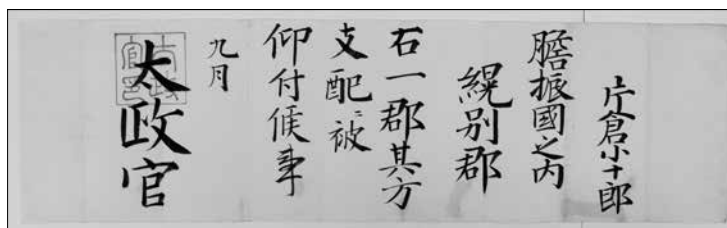 片倉小十郎
膽振國之内
幌別郡
右一郡其方
支配ニ被
仰付候事
九月
太政官
太政官印